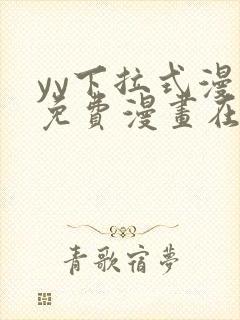 yy下拉式漫
免費漫畫在
青歌宿夢